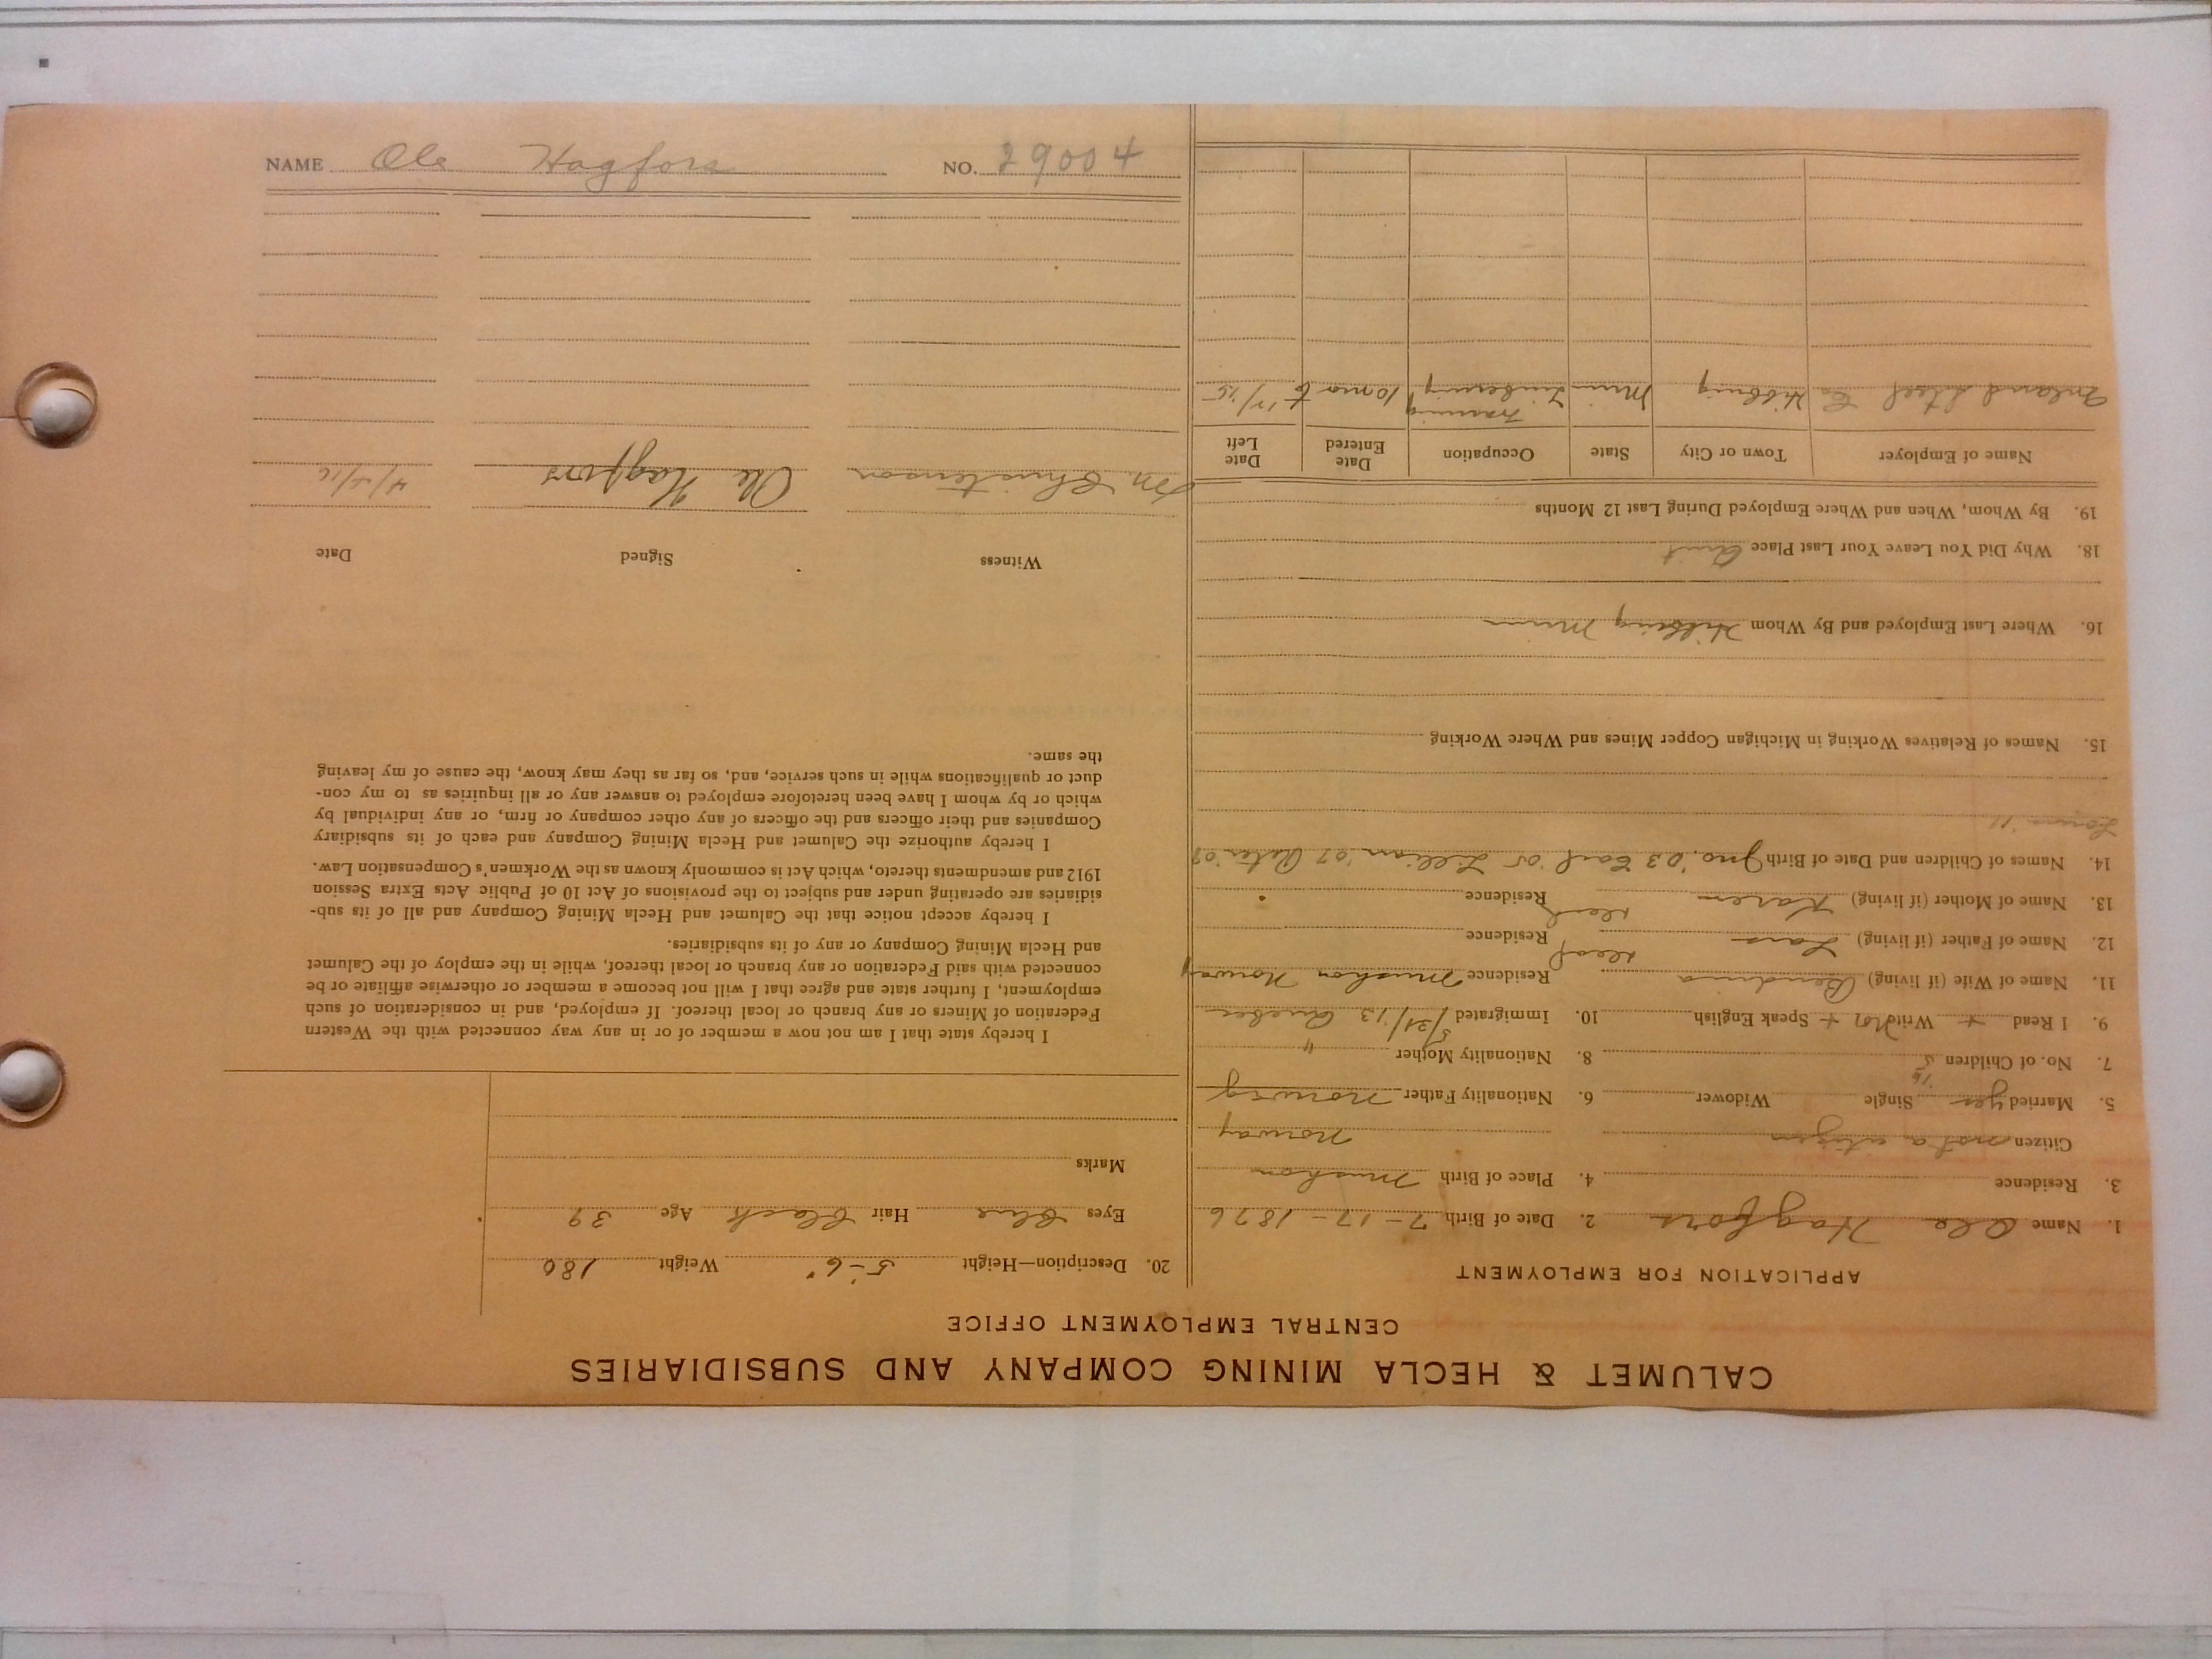 CALUMET & HECLA MINING COMPANY AND SUBSIDIARIES
CENTRAL EMPLOYMENT OFFICE
APPLICATION FOR EMPLOYMENT
1. Name Ole Hagfors 2. Date of Birth 7-17-1876
3. Residence 4. Place of Birth
Citizen not a citizen Norway
5. Married yes Single Widower 6. Nationality Father Norweg
7. No. of Children 5 8. Nationality Mother "
9. I Read + Write + Speak English 10. Immigrated 5/31/13 Quebec
11. Name of Wife (if living) Residence Norway
12. Name of Father (if living) Lars dead Residence
13. Name of Mother (if living) Karen dead Residence
14. Names of Children and Date of Birth Jno. '03 Carl '05 Lillian '07 '09
'11
15. Names of Relatives Working in Michigan Copper Mines and Where Working
16. Where Last Employed and By Whom Hibbing Minn
18. Why Did You Leave Your Last Place Quit
19. By Whom, When and Where Employed During Last 12 Months
Name of Employer Town or City State Occupation Date Entered Date Left
Inland Steel Co Hibbing Minn Tramming Timbering 10 mo
20. Description—Height 5'-6" Weight 180
Eyes Blue Hair Black Age 39
Marks
I hereby state that I am not now a member of or in any way connected with the Western
Federation of Miners or any branch or local thereof. If employed, and in consideration of such
employment, I further state and agree that I will not become a member or otherwise affiliate or be
connected with said Federation or any branch or local thereof, while in the employ of the Calumet
and Hecla Mining Company or any of its subsidiaries.
I hereby accept notice that the Calumet and Hecla Mining Company and all of its sub-
sidiaries are operating under and subject to the provisions of Act 10 of Public Acts Extra Session
1912 and amendments thereto, which Act is commonly known as the Workmen's Compensation Law.
I hereby authorize the Calumet and Hecla Mining Company and each of its subsidiary
Companies and their officers and the officers of any other company or firm, or any individual by
which or by whom I have been heretofore employed to answer any or all inquiries as to my con-
duct or qualifications while in such service, and, so far as they may know, the cause of my leaving
the same.
Witness Signed Date
M. Christenson Ole Hagfors
NAME Ole Hagfors NO. 29004